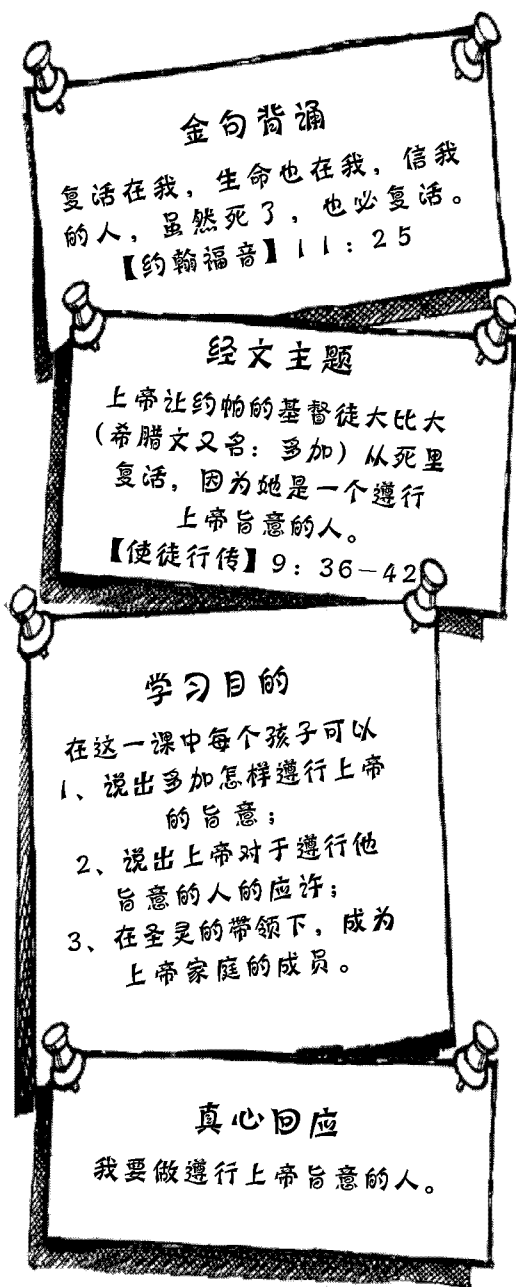 金句背诵
复活在我，生命也在我，信我
的人，虽然死了，也必复活。
【约翰福音】11：25
经文主题
上帝让约帕的基督徒大比大
（希腊文又名：多加）从死里
复活，因为她是一个遵行
上帝旨意的人。
【使徒行传】9：36－42
学习目的
在这一课中每个孩子可以
1、说出多加怎样遵行上帝
的旨意；
2、说出上帝对于遵行他
旨意的人的应许；
3、在圣灵的带领下，成为
上帝家庭的成员。
真心回应
我要做遵行上帝旨意的人。